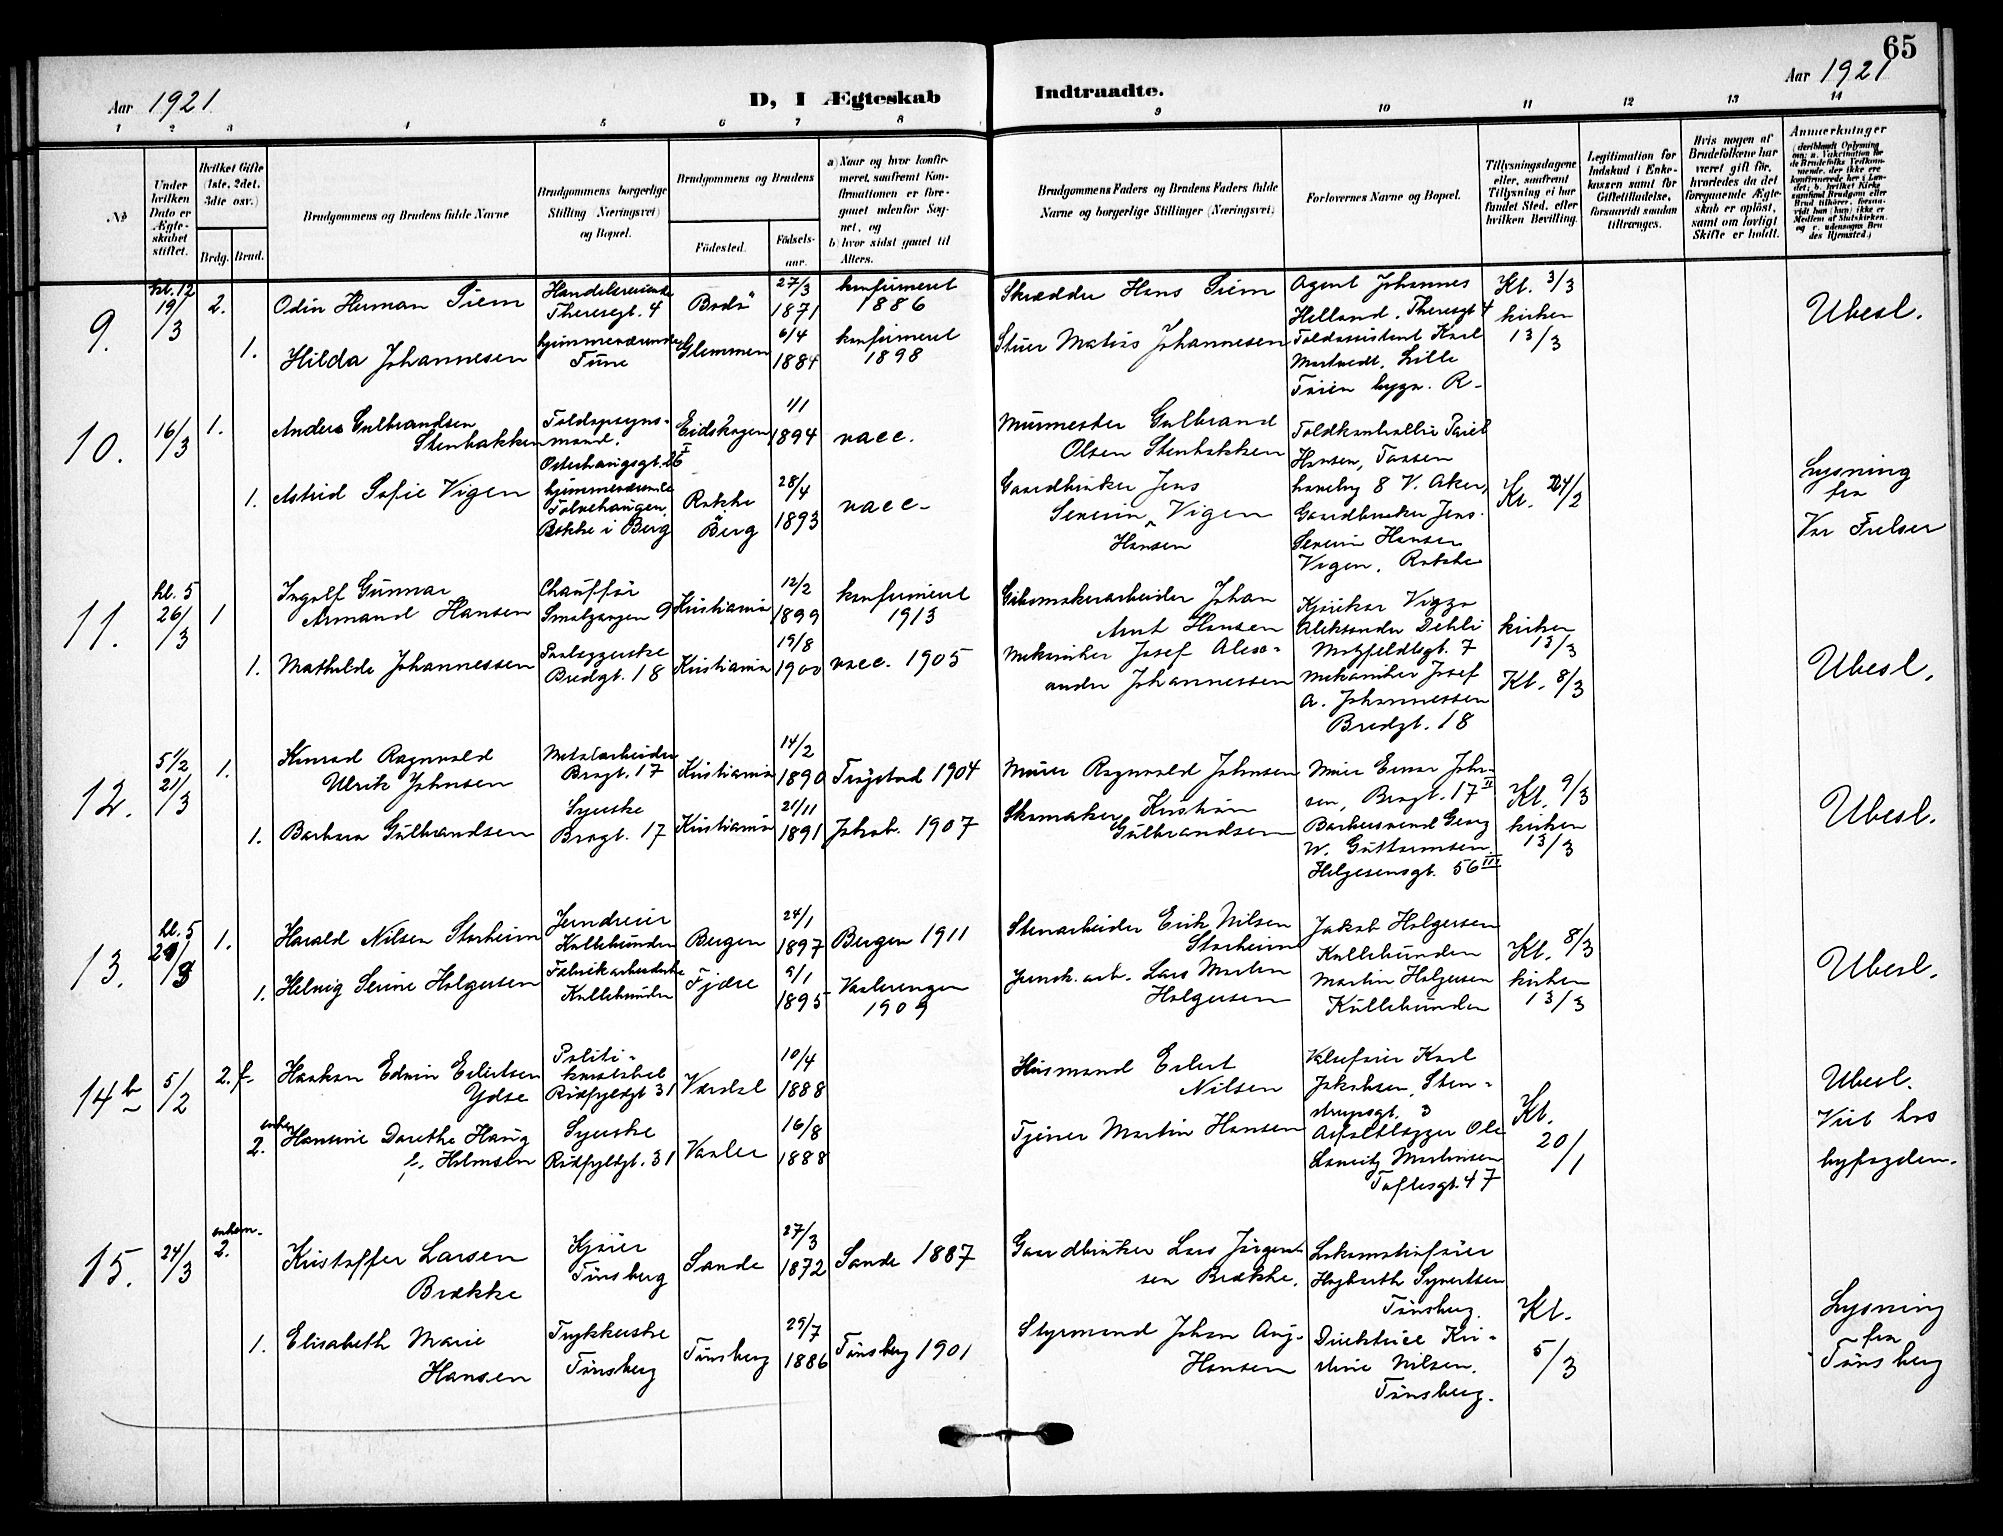 65
Aar 1921.
D, I Ægteskab
Indtraadte.
Aar 1921
1 2 3 4 5 6 7 8 9 10 11 12 13 14
No
Under hvilken Dato er Ægteskabet stiftet.
Hvilket Gifte (1ste, 2det, 3die osv.)
Brdg. Brud.
Brudgommens og Brudens fulde Navne
Brudgommens borgerlige Stilling (Næringsvei) og Bopæl.
Brudgommens og Brudens
Fødested.
Fødselsaar.
a) Naar og hvor konfirmeret, saafremt Konfirmationen er foregaaet udenfor Sognet, og
b) hvor sidst gaaet til Alters.
Brudgommens Faders og Brudens Faders fulde Navne og borgerlige Stillinger (Næringsvei)
Forlovernes Navne og Bopæl.
Tillysningsdagene eller, saafremt Tillysning ei har fundet Sted, efter hvilken Bevilling.
Legitimation for Indskud i Enkekassen samt for Giftetilladelse, forsaavidt saadan tiltrænges.
Hvis nogen af Brudefolkene har været gift før, hvorledes da det foregaaende Ægteskab er opløst, samt om lovligt Skifte er holdt.
Anmærkninger
9.
kl. 12
19/3
2.
Odin Herman Siem
Handelsreisende
Theresegt. 4
Bodø
27/3
1871
konfirmeret
1886
Skrædder Hans Siem
Agent Johannes
Helland, Theresgt 4
Kl. 3/3
kirken
13/3
Ubesl.
1.
Hilda Johannesen
hjemmeværende
Tune
Glemmen
6/4
1884
konfirmeret
1898
Stuer Matias Johannesen
Toldassistent Karl
Lille
Tøien hyga. R-
10.
16/3
1.
Anders Gulbrandsen
Stenbakken
Toldopsyns-
mand.
Eidskogen
1/1
1894
vacc.
Murmester Gulbrand
Olsen Stenbakken
Hansen, Taasen
haveby 8 V. Aker,
1.
Astrid Sofie Vigen
hjemmeværende
i Berg
Rokke
Berg
28/4
1893
vacc.
Gaardbruker Jens
Severin Vigen
Hansen
Gaardbruker Jens
Severin Hansen
Vigen, Rokke
Kl. 24/2
Lysning
fra
Vor Frelser
11.
kl. 5
26/3
1
Ingolf Gunnar
Armand Hansen
Chauffør
Smalgangen 9
Kristiania
12/2
1899
konfirmeret
1913
Johan
Arnt Hansen
Viggo
Aleksander Dehli
Motzfeldtsgt. 7
kirken
13/3
1.
Mathilde Johannessen
Bredgt. 18
Kristiania
19/8
1900
vacc. 1905
Mekaniker Josef Alex-
ander Johannessen
Mekaniker Josef
A. Johannessen
Bredgt. 18
Kl. 8/3
Ubesl.
12.
5 1/2
21/3
1.
Konrad Ragnvald
Ulrik Johnsen
Metalarbeider
Bragt. 17
Kristiania
14/2
1890
Trøgstad 1904
Murer Ragnvald Johnsen
Murer Einar John-
sen, Bragt. 17 II
Kl. 9/3
kirken
13/3
Ubesl.
1.
Barbara Gulbrandsen
Syerske
Bragt. 17
Kristiania
21/11
1891
Jakob. 1907
Skomaker Kristian
Gulbrandsen
Barbersvend Georg
W. Guttormsen
Helgesensgt. 56 III
13.
kl. 5
1.
Harald Nilsen Storheim
Jerndreier
Kullebunden
Bergen
24/1
1897
Bergen 1911
Stenarbeider Erik Nilsen
Storheim
Jakob Holgersen
Kullebunden
Kl. 8/3
kirken
13/3
Ubesl.
1.
Helvig Serine Holgersen
Fabrikarbeiderske
Kullebunden
Fjære
9/1
1895
Vaalerengen
1909
Lars Martin
Holgersen
Martin Holgersen
Kullebunden
14 b
5/2
2. f.
Haakon Edvin Eilertsen
Ydse
Politi-
konstabel
Rudfyldgt 31
Værdal
10/4
1888
Husmand Eilert
Nilsen
Karl
Jakobsen, Sten-
strupsgt. 3
Kl.
20/1
Ubesl.
Viet hos
byfogden.
2.
Hansine Dorethe Haug
f. Holmsen
Syerske
Rudfyldgt. 31
Vaaler
16/8
1888
Tjener Martin Hansen
Asfaltlægger Ole
Martinsen
Toftesgt. 47
15.
24/3
enkem.
2.
Kristoffer Larsen
Brække
Kjører
Tønsberg
Sande
27/3
1872
Sande 1887
Gaardbruker Lars Jørgen-
sen Brække.
Lokomotivfører
Hagbarth Syvertsen
Tønsberg
Kl.
5/3
Lysning
fra
Tønsberg
1.
Elisabeth Marie
Hansen
Trykkerske
Tønsberg
Tønsberg
29/7
1886
Tønsberg 1901
Styrmand Johan Aug.
Hansen
Direktrice Kri-
stine Nilsen.
Tønsberg.